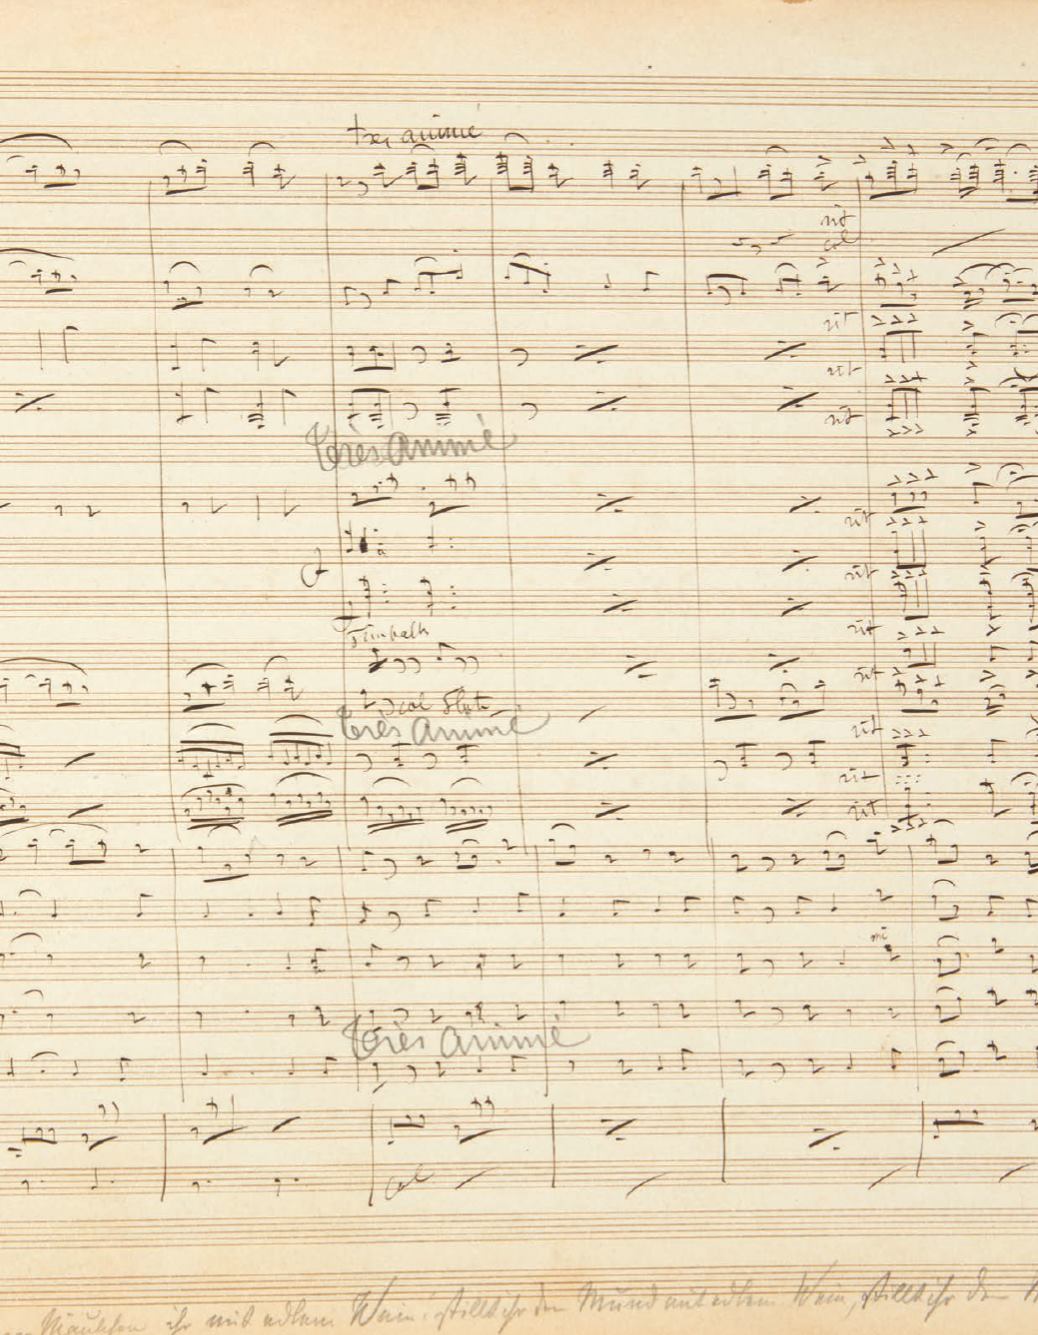 tres animé
rit
col
rit
rit
rit
Très animé
rit
rit
rit
rit
col Flute
Très animé
rit
rit
rit
Très animé
col
ihr mit edlem Wein! stillt ihr den Mund mit edlem Wein, stillt ihr den